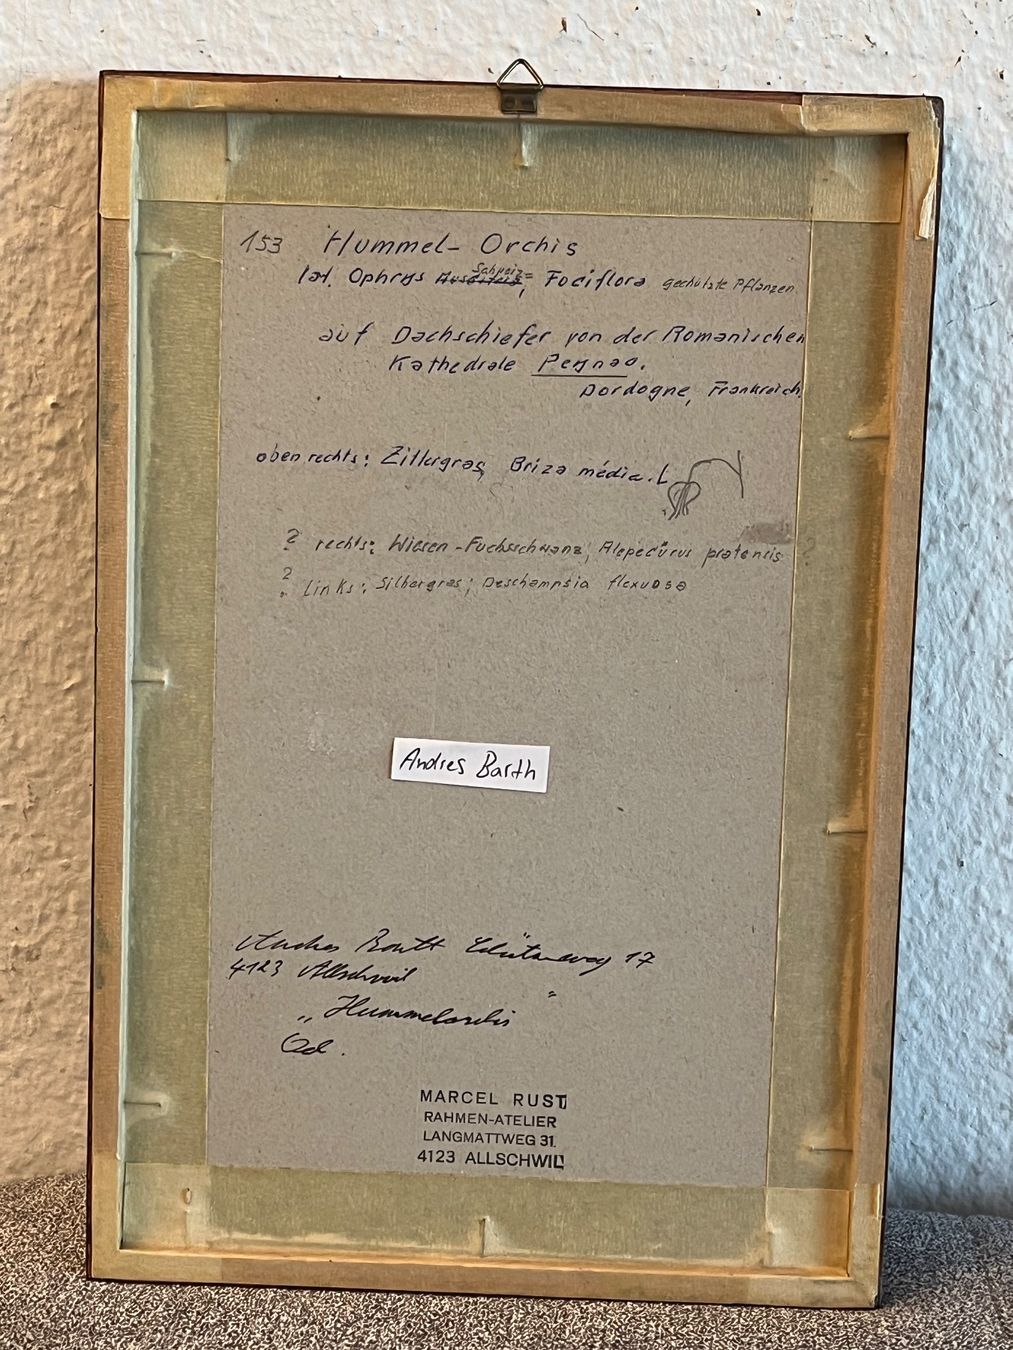 153 Hummel-Orchis
lat. Ophrys Schweiz= Fociflora geschützte Pflanzen
auf Dachschiefer von der Romanischen
Kathedrale Peynao.
Dordogne, Frankreich
oben rechts: Zittergras, Briza média. L
? rechts: Wiesen-Fuchsschwanz; Alepecúrus pratensis ?
? Links: Silbergras; Deschampsia flexuosa
Andres Barth
Andres Barth 17
4123 Allschwil
„Hummelorchis"
Öl.
MARCEL RUST
RAHMEN-ATELIER
LANGMATTWEG 31.
4123 ALLSCHWIL